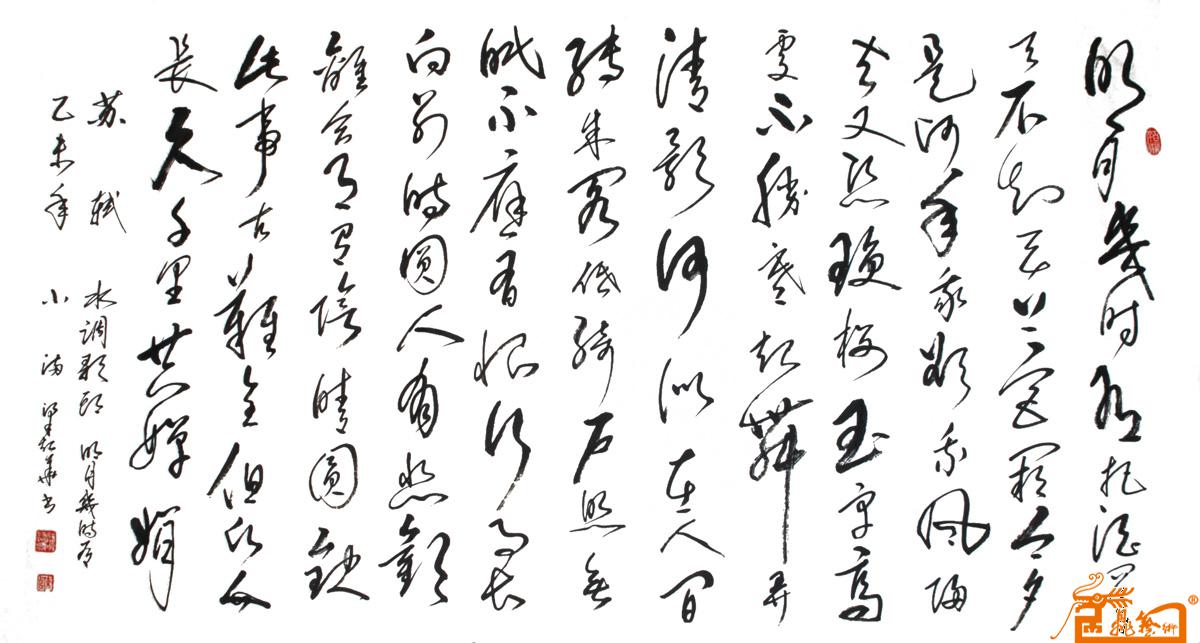 明月幾时有把酒问
天不知天上宫阙今夕
是何年我欲乘风归
去又恐瓊楼玉宇高
处不胜寒起舞弄
清影何似在人间
转朱阁低绮户照无
眠不应有恨何事长
向别时圆人有悲歡
離合月有阴晴圆缺
此事古難全但願人
長久千里共嬋娟
苏轼 水调歌頭 明月幾时有
乙未年 小满 梁红華书